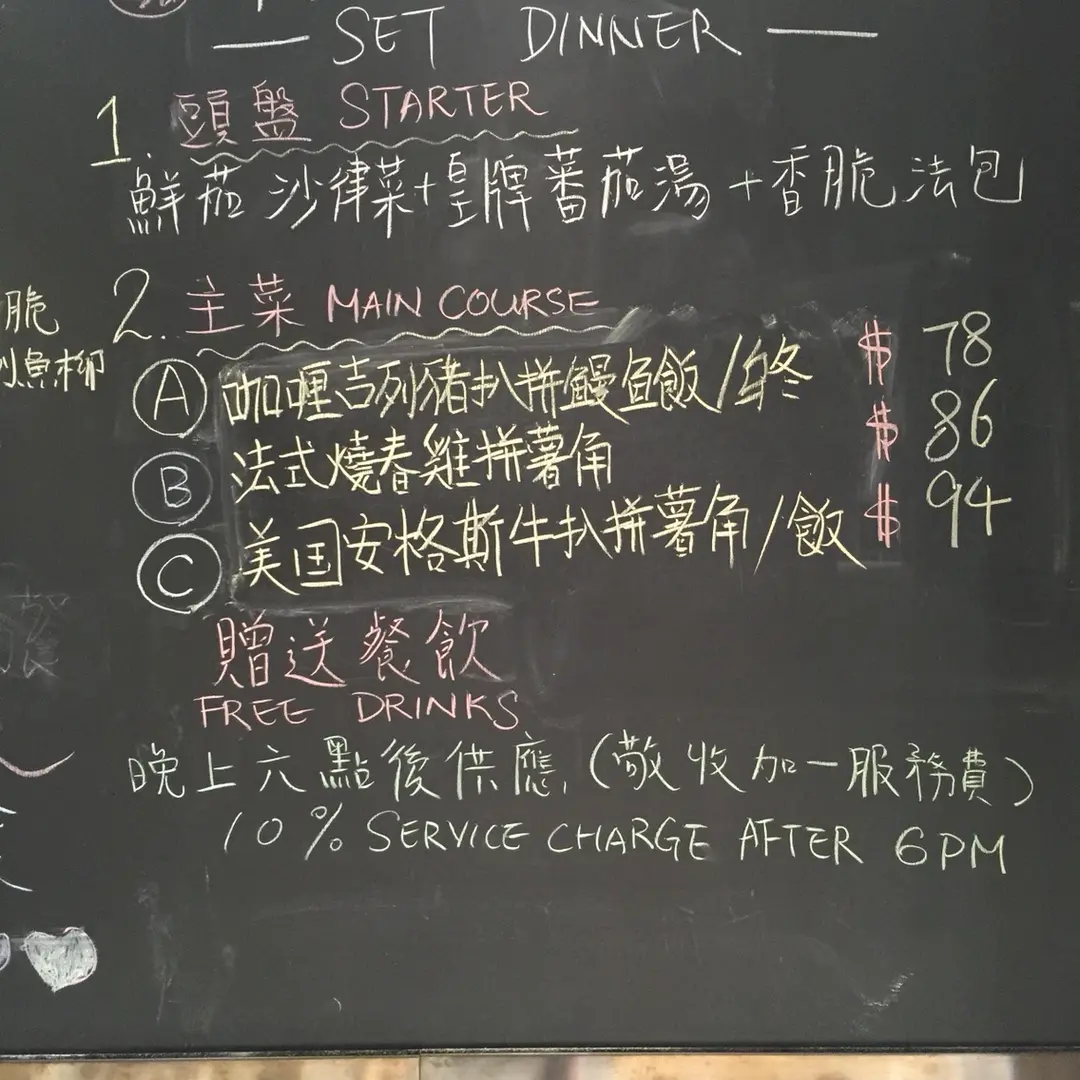 — SET DINNER —
1. 頭盤 STARTER
鮮茄沙律菜+皇牌蕃茄湯+香脆法包
2. 主菜 MAIN COURSE
Ⓐ 咖喱吉列豬扒拼鰻魚飯/終 $ 78
Ⓑ 法式燒春雞拼薯角 $ 86
Ⓒ 美国安格斯牛扒拼薯角/飯 $ 94
贈送餐飲
FREE DRINKS
晚上六點後供應,(敬收加一服務費)
10% SERVICE CHARGE AFTER 6PM
脆
魚柳
餐